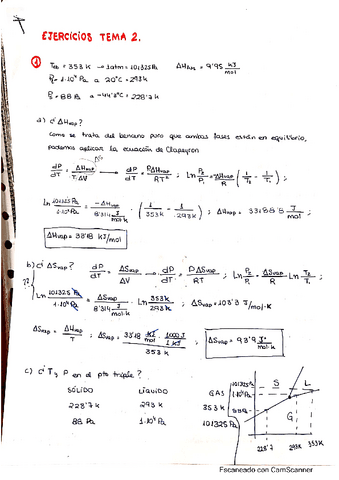 EJERCICIOS TEMA 2.
① Teb = 353 K → 1 atm = 101325 Pa ΔHfus = 9'95 kJ/mol
P₁ = 1·10⁴ Pa a 20°C = 293k
P₂ = 88 Pa a -44'3°C = 228'7k
a) ¿ΔHvap?
Como se trata del benceno puro que ambas fases están en equilibrio,
podemos aplicar la ecuación de Clapeyron
dP/dT = ΔHvap/T·ΔV → dP/dT = PΔHvap/RT² ; Ln P₂/P₁ = ΔHvap/R (1/T₂ - 1/T₁) ;
Ln 101325 Pa/1·10⁴ Pa = -ΔHvap/8'314 J/mol·k · (1/353k - 1/293k) ; ΔHvap = 33188'8 J/mol ;
ΔHvap = 33'18 kJ/mol
b) ¿ΔSvap? dP/dT = ΔSvap/ΔV → dP/dT = PΔSvap/RT ; Ln P₂/P₁ = ΔSvap/R Ln T₂/T₁ ;
??
Ln 101325 Pa/1·10⁴ Pa = ΔSvap/8'314 J/mol·k · Ln 353k/293k ; ΔSvap = 103'3 J/mol·K
ΔSvap = ΔHvap/T ; ΔSvap = 33'18 kJ/mol · 1000J/1kJ / 353k ; ΔSvap = 93'9 J/mol·k
c) ¿T₃ P en el pto triple?
SÓLIDO LÍQUIDO GAS
228'7k 293 k 353 k
88 Pa 1·10⁴ Pa 101325 Pa
101325 Pa
1·10⁴ Pa
88 Pa
S L
G
228'7k 293k 353k
Escaneado con CamScanner